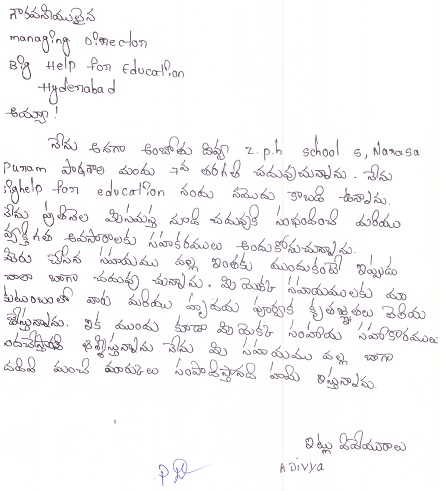 గౌరవనీయులైన
managing Director
Big Help for Education
Hyderabad
అయ్యా!
నేను అనగా అంబోతు దివ్యా z.p.h school s, Narasa
Puram పాఠశాల యందు 7వ తరగతి చదువుచున్నాను. నేను
Bighelp for education నందు నమోదు కాబడి ఉన్నాను.
నేను ప్రతినెల మీసంస్థ నుండి చదువుకి సంభందించి మరియు
వ్యక్తిగత అవసరాలకు సహకారములు అందుకోనుచున్నాను.
మీరు చేసిన సహాయము వల్ల ఇంతకు ముందుకంటే ఇప్పుడు
చాలా బాగా చదువు చున్నాను. మీ యొక్క సహాయములకు మా
కుటుంబంలో వారు మరియు హృదయ పూర్వక కృతజ్ఞతలు తెలియ
చేస్తున్నాను. ఇక ముందు కూడా మీ యొక్క సహాయ సహాకారములు
నేను మీ సహాయము వల్ల బాగా
చదివి మంచి మార్కులు సంపాదిస్తానని హామి ఇస్తున్నాను.
ఇట్లు విధేయురాలు
A Divya